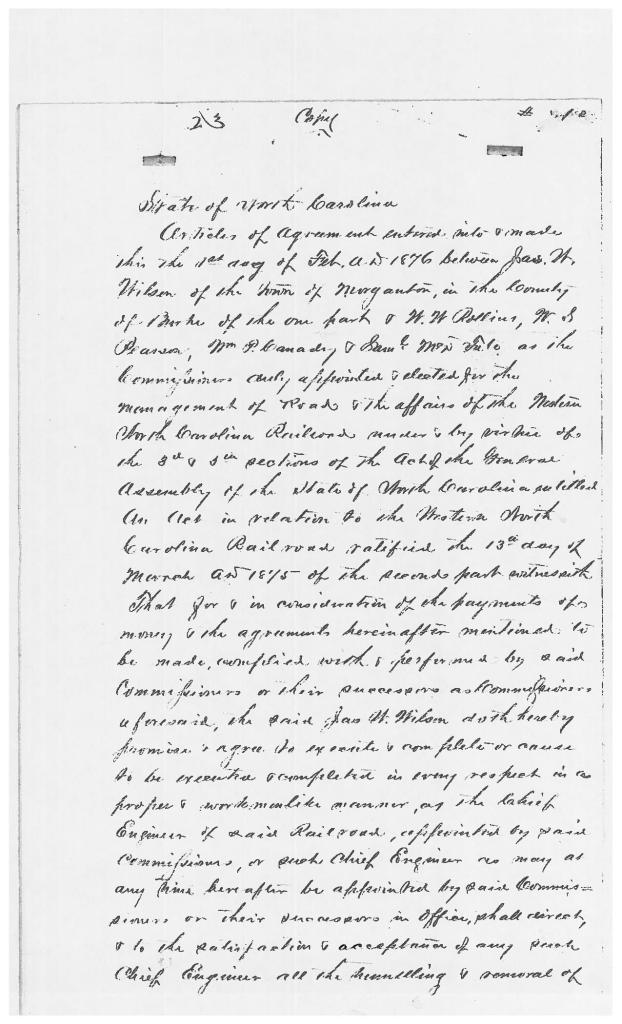 23 Copy
State of North Carolina
Articles of Agrament entered into & made
this the 1st day of Feb. A.D 1876 between Jas. W.
Wilson of the Town of Morganton, in the County
of Burke of the one part & W. W Rollins, W. S
Pearson, Wm P. Canady & Saml McD Tate as the
Commissioners duly appointed & elected for the
management of Road & the affairs of the Western
North Carolina Railroad under & by virtue of
the 3d & 5th sections of the Act of the General
Assembly of the State of North Carolina entitled
An Act in relation to the Western North
Carolina Rail road ratified the 13th day of
March A.D 1875 of the second part witnesseth
That for & in consideration of the payments of
money & the agreements hereinafter mentioned to
be made, complied with & performed by said
Commissioners or their successors as Commissioners
aforesaid, the said Jas W. Wilson doth hereby
promise & agree to execute & complete or cause
to be executed & completed in every respect in a
proper & workmenlike manner, as the Chief
Engineer of said Railroad, appointed by said
Commissioners, or such Chief Engineer as may at
any time hereafter be appointed by said Commis=
sioners or their successors in Office, shall direct,
& to the satisfaction & acceptance of any such
Chief Engineer all the tunnelling & removal of